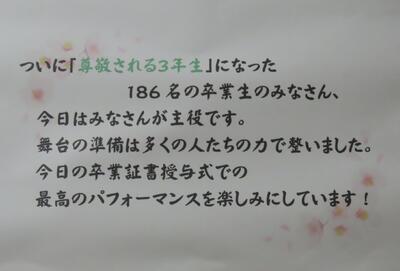 ついに「尊敬される3年生」になった
186名の卒業生のみなさん、
今日はみなさんが主役です。
舞台の準備は多くの人たちの力で整いました。
今日の卒業証書授与式での
最高のパフォーマンスを楽しみにしています！